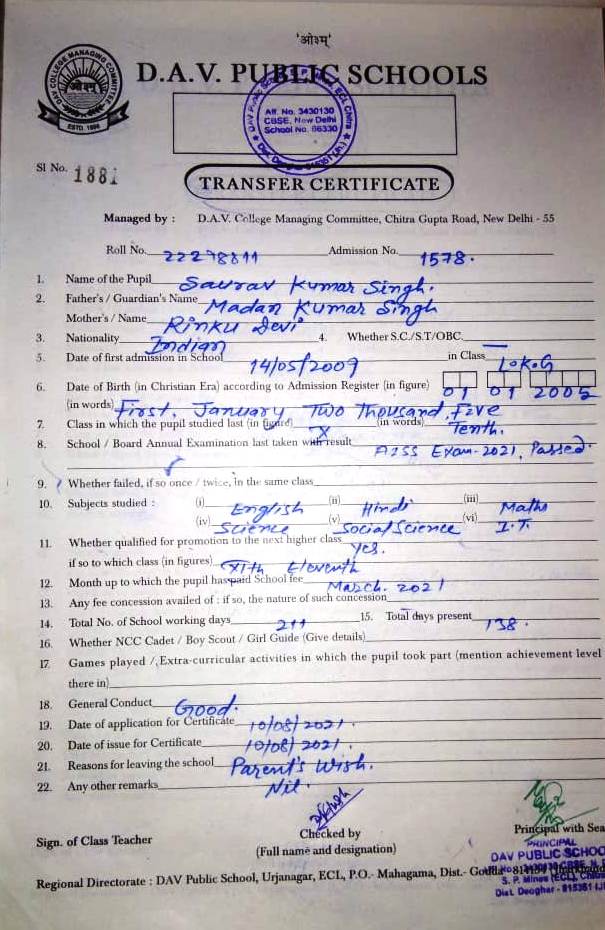 'ओ३म्'
DAV COLLEGE MANAGING COMMITTEE
ओ३म्
ESTD. 1886
D.A.V. PUBLIC SCHOOLS
Aff. No. 3430130
CBSE, New Delhi
School No. 66330
Sl No. 1881
TRANSFER CERTIFICATE
Managed by : D.A.V. College Managing Committee, Chitra Gupta Road, New Delhi - 55
Roll No. 22278811 Admission No. 1578.
1. Name of the Pupil Saurav Kumar Singh.
2. Father's / Guardian's Name Madan Kumar Singh
Mother's / Name Rinku Devi
3. Nationality Indian 4. Whether S.C./S.T/OBC. —
5. Date of first admission in School 14/05/2009 in Class L.K.G
6. Date of Birth (in Christian Era) according to Admission Register (in figure) 01 01 2005
(in words) First, January Two Thousand Five
7. Class in which the pupil studied last (in figure) X (in words) Tenth.
8. School / Board Annual Examination last taken with result AISS Exam-2021, Passed.
9. Whether failed, if so once / twice, in the same class
10. Subjects studied : (i) English (ii) Hindi (iii) Maths
(iv) Science (v) Social Science (vi) I.T.
11. Whether qualified for promotion to the next higher class Yes.
if so to which class (in figures) XIth Eleventh
12. Month up to which the pupil has paid School fee March. 2021
13. Any fee concession availed of : if so, the nature of such concession
14. Total No. of School working days 211 15. Total days present 138.
16. Whether NCC Cadet / Boy Scout / Girl Guide (Give details)
17. Games played / Extra-curricular activities in which the pupil took part (mention achievement level
there in)
18. General Conduct Good.
19. Date of application for Certificate 10/08/2021.
20. Date of issue for Certificate 10/08/2021.
21. Reasons for leaving the school Parent's Wish.
22. Any other remarks Nil.
Sign. of Class Teacher
Checked by
(Full name and designation)
Principal with Sea
PRINCIPAL
DAV PUBLIC SCHOO
S. P. Mines (ECL), Chitra
Dist. Deoghar - 815351 (J
Regional Directorate : DAV Public School, Urjanagar, ECL, P.O.- Mahagama, Dist.- Godda